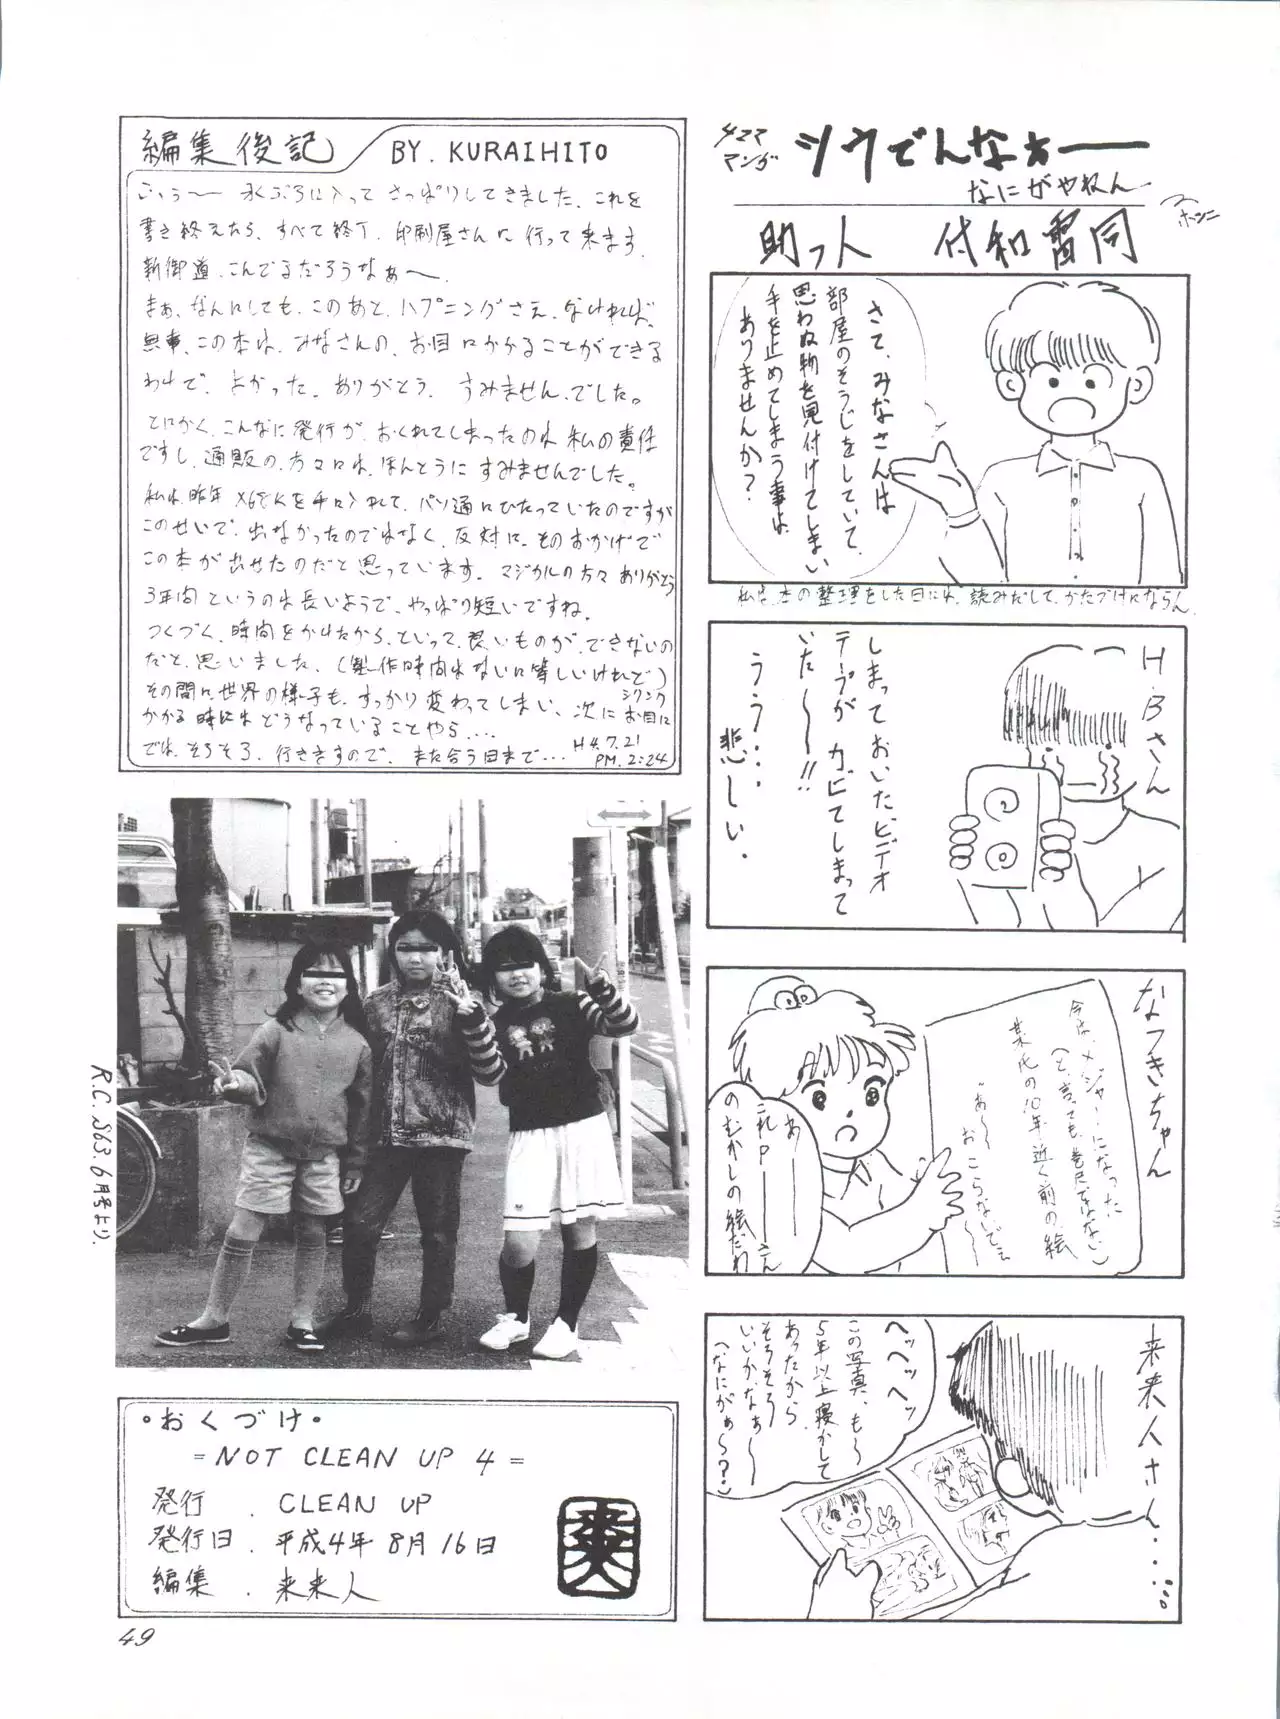 編集後記
BY. KURAIHITO
ふぅ〜 水ぶろに入って さっぱりしてきました. これを
書き終えたら、すべて終了. 印刷屋さんに 行って来ます.
新御道. こんでるだろうなぁ〜.
まぁ、なんにしても、このあと、ハプニングさえ、なければ、
無事、この本は、みなさんの、お目にかかることができる
わけで、よかった. ありがとう. うみません.でした。
とにかく、こんなに発行が、おくれてしまったのは 私の責任
ですし、通販の、方々には、ほんとうに すみませんでした。
私は、昨年 X68Kを手に入れて、パソ通にひたっていたのですが
このせいで、出なかったのではなく、反対に、そのおかげで
この本が出せたのだと思っています. マジカルの方々 ありがとう
3年間というのは長いようで、やっぱり短いですね.
つくづく、時間をかけたから、といって、良いものが、できないの
だと、思いました. (製作時間はないに等しいけれど)
その間に、世界の様子も、すっかり変わってしまい、次に
お目に
かかる時には どうなっていることやら....
では、そろそろ、行きますので、また合う日まで...
H4.7.21
PM.2:24
4コマ
マンガ
シウでんなぁー
なにがやねん
助っ人 付和雷同
さて、みなさんは
部屋のそうじをしていて、
思わぬ物を見付けてしまい
手を止めてしまう事は、
ありませんか？
私は、本の整理をした日には、読みだして、かたづけにならん.
H.Bさん
しまっておいたビデオ
テープが カビてしまって
いた〜〜!!
ううう....
悲しい.
なつきちゃん
今は、メジャーになった
(と、言っても、巻尺ではない)
某氏の10年近く前の絵
"あ〜〜 おこらないでぇ〜〜
あ――
これP――さん
のむかしの絵だわ
来来人さん...
ヘッヘッヘッ
この写真、も〜
5年以上寝かして
あったから
そろそろ
いいかなぁ〜
(なにがぁ〜？)
R.C. S63. 6月号より.
・おくづけ・
= NOT CLEAN UP 4 =
発行 . CLEAN UP
発行日 . 平成4年 8月16日
編集 . 来来人
49